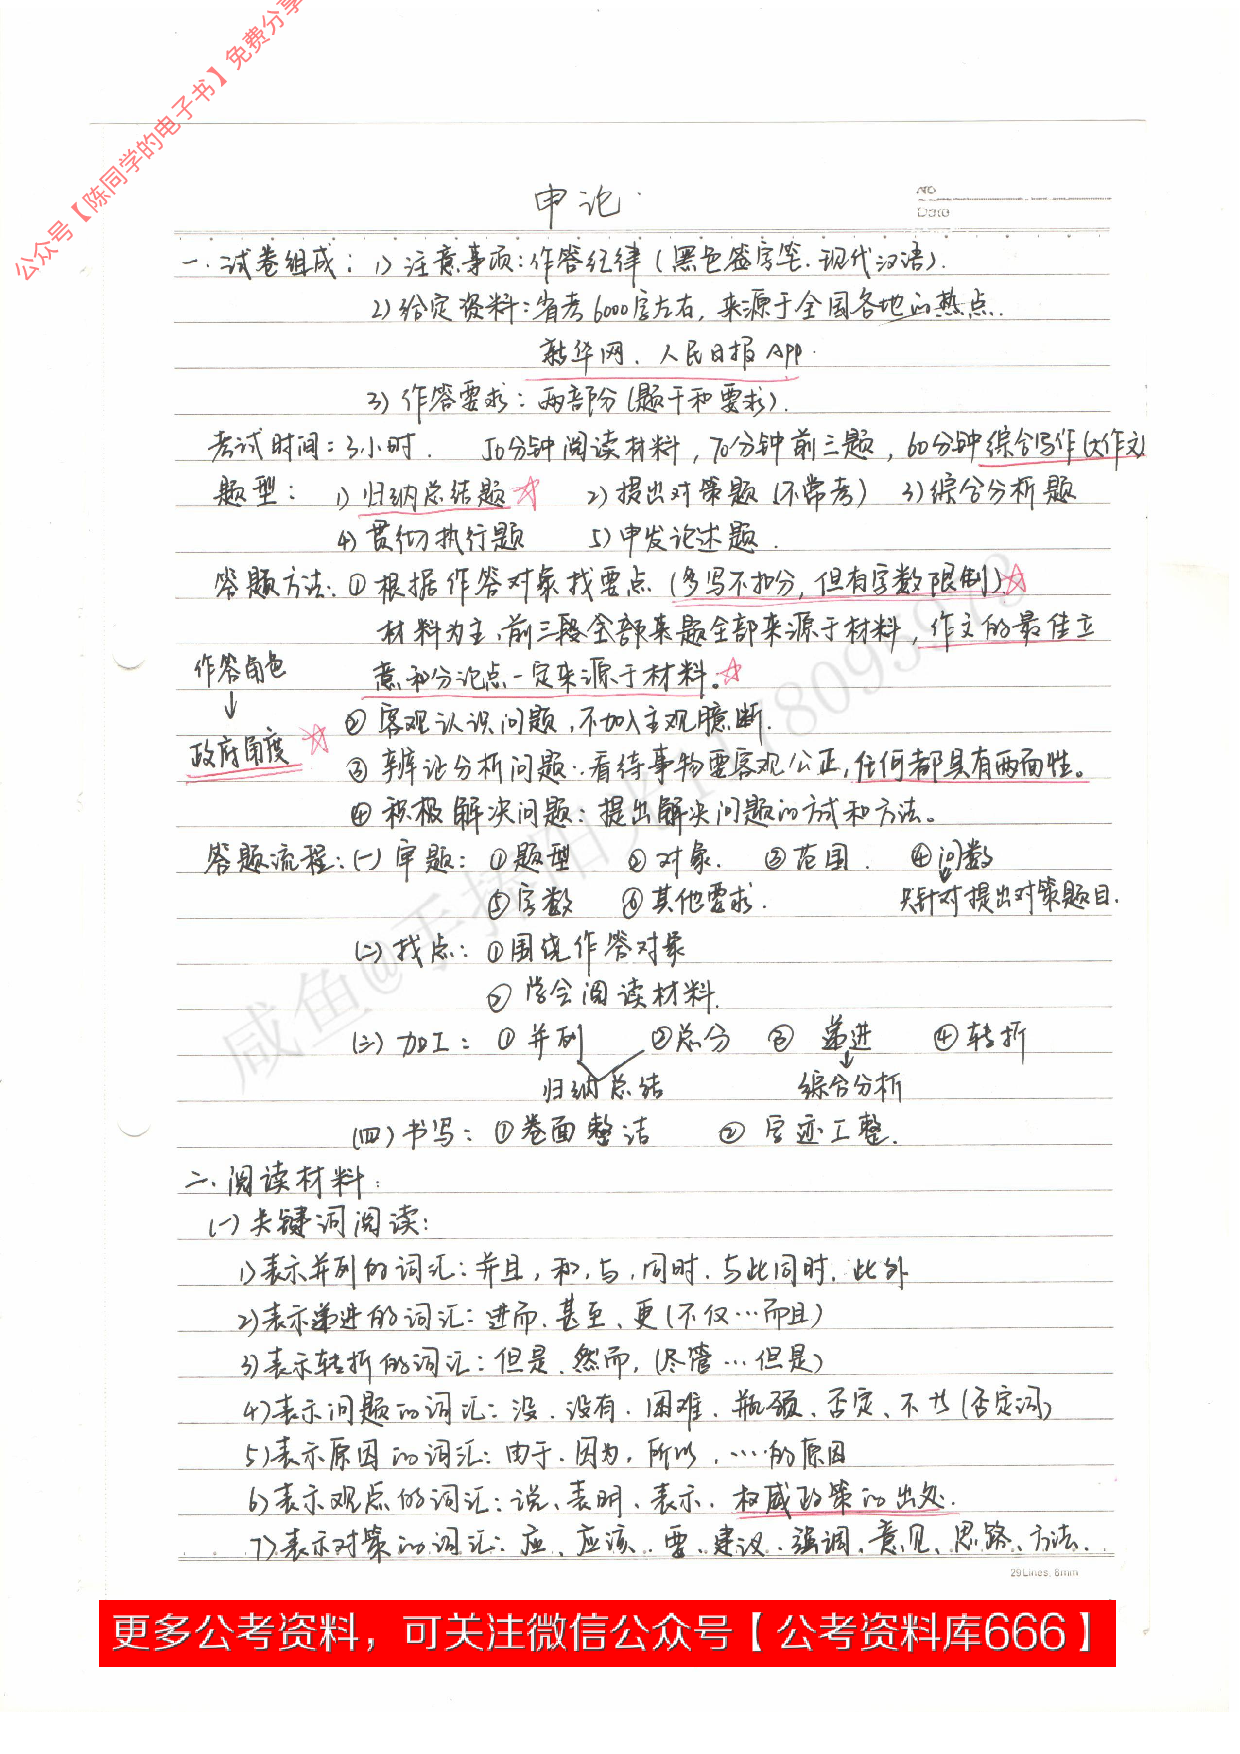 公众号【陈同学的电子书】免费分享
申论
NO
Date
一.试卷组成：1)注意事项:作答纪律（黑色签字笔.现代汉语）.
2)给定资料:省考6000字左右,来源于全国各地的热点.
新华网、人民日报App.
3)作答要求：两部分(题干和要求).
考试时间：3小时. 50分钟阅读材料,70分钟前三题,60分钟综合写作(大作文)
题型： 1)归纳总结题☆ 2)提出对策题(不常考) 3)综合分析题
4)贯彻执行题 5)申发论述题.
答题方法：①根据作答对象找要点(多写不扣分,但有字数限制)☆
材料为主,前三段全部来题全部来源于材料,作文的最佳立
作答角色 意和分论点一定来源于材料。☆
↓ ②客观认识问题,不加入主观臆断.
政府角度☆ ③辨证分析问题：看待事物要客观公正,任何都具有两面性。
④积极解决问题：提出解决问题的方式和方法。
答题流程：(一)审题：①题型 ②对象. ③范围. ④问数
⑤字数 ⑥其他要求. 只针对提出对策题目.
(二)找点：①围绕作答对象
②学会阅读材料.
(三)加工：①并列 ②总分 ③递进 ④转折
归纳总结 综合分析
(四)书写：①卷面整洁 ②字迹工整.
二.阅读材料：
(一)关键词阅读：
1)表示并列的词汇：并且,和,与,同时.与此同时.此外
2)表示递进的词汇：进而.甚至、更(不仅…而且)
3)表示转折的词汇：但是.然而,(尽管…但是)
4)表示问题的词汇：没.没有.困难.瓶颈、否定、不 (否定词)
5)表示原因的词汇：由于.因为,所以,…的原因
6)表示观点的词汇：说、表明、表示.权威政策的出处.
7)表示对策的词汇：应、应该、要、建议.强调、意见、思路、方法.
29Lines, 8mm
咸鱼@手捧阳光1178095973
更多公考资料，可关注微信公众号【公考资料库666】